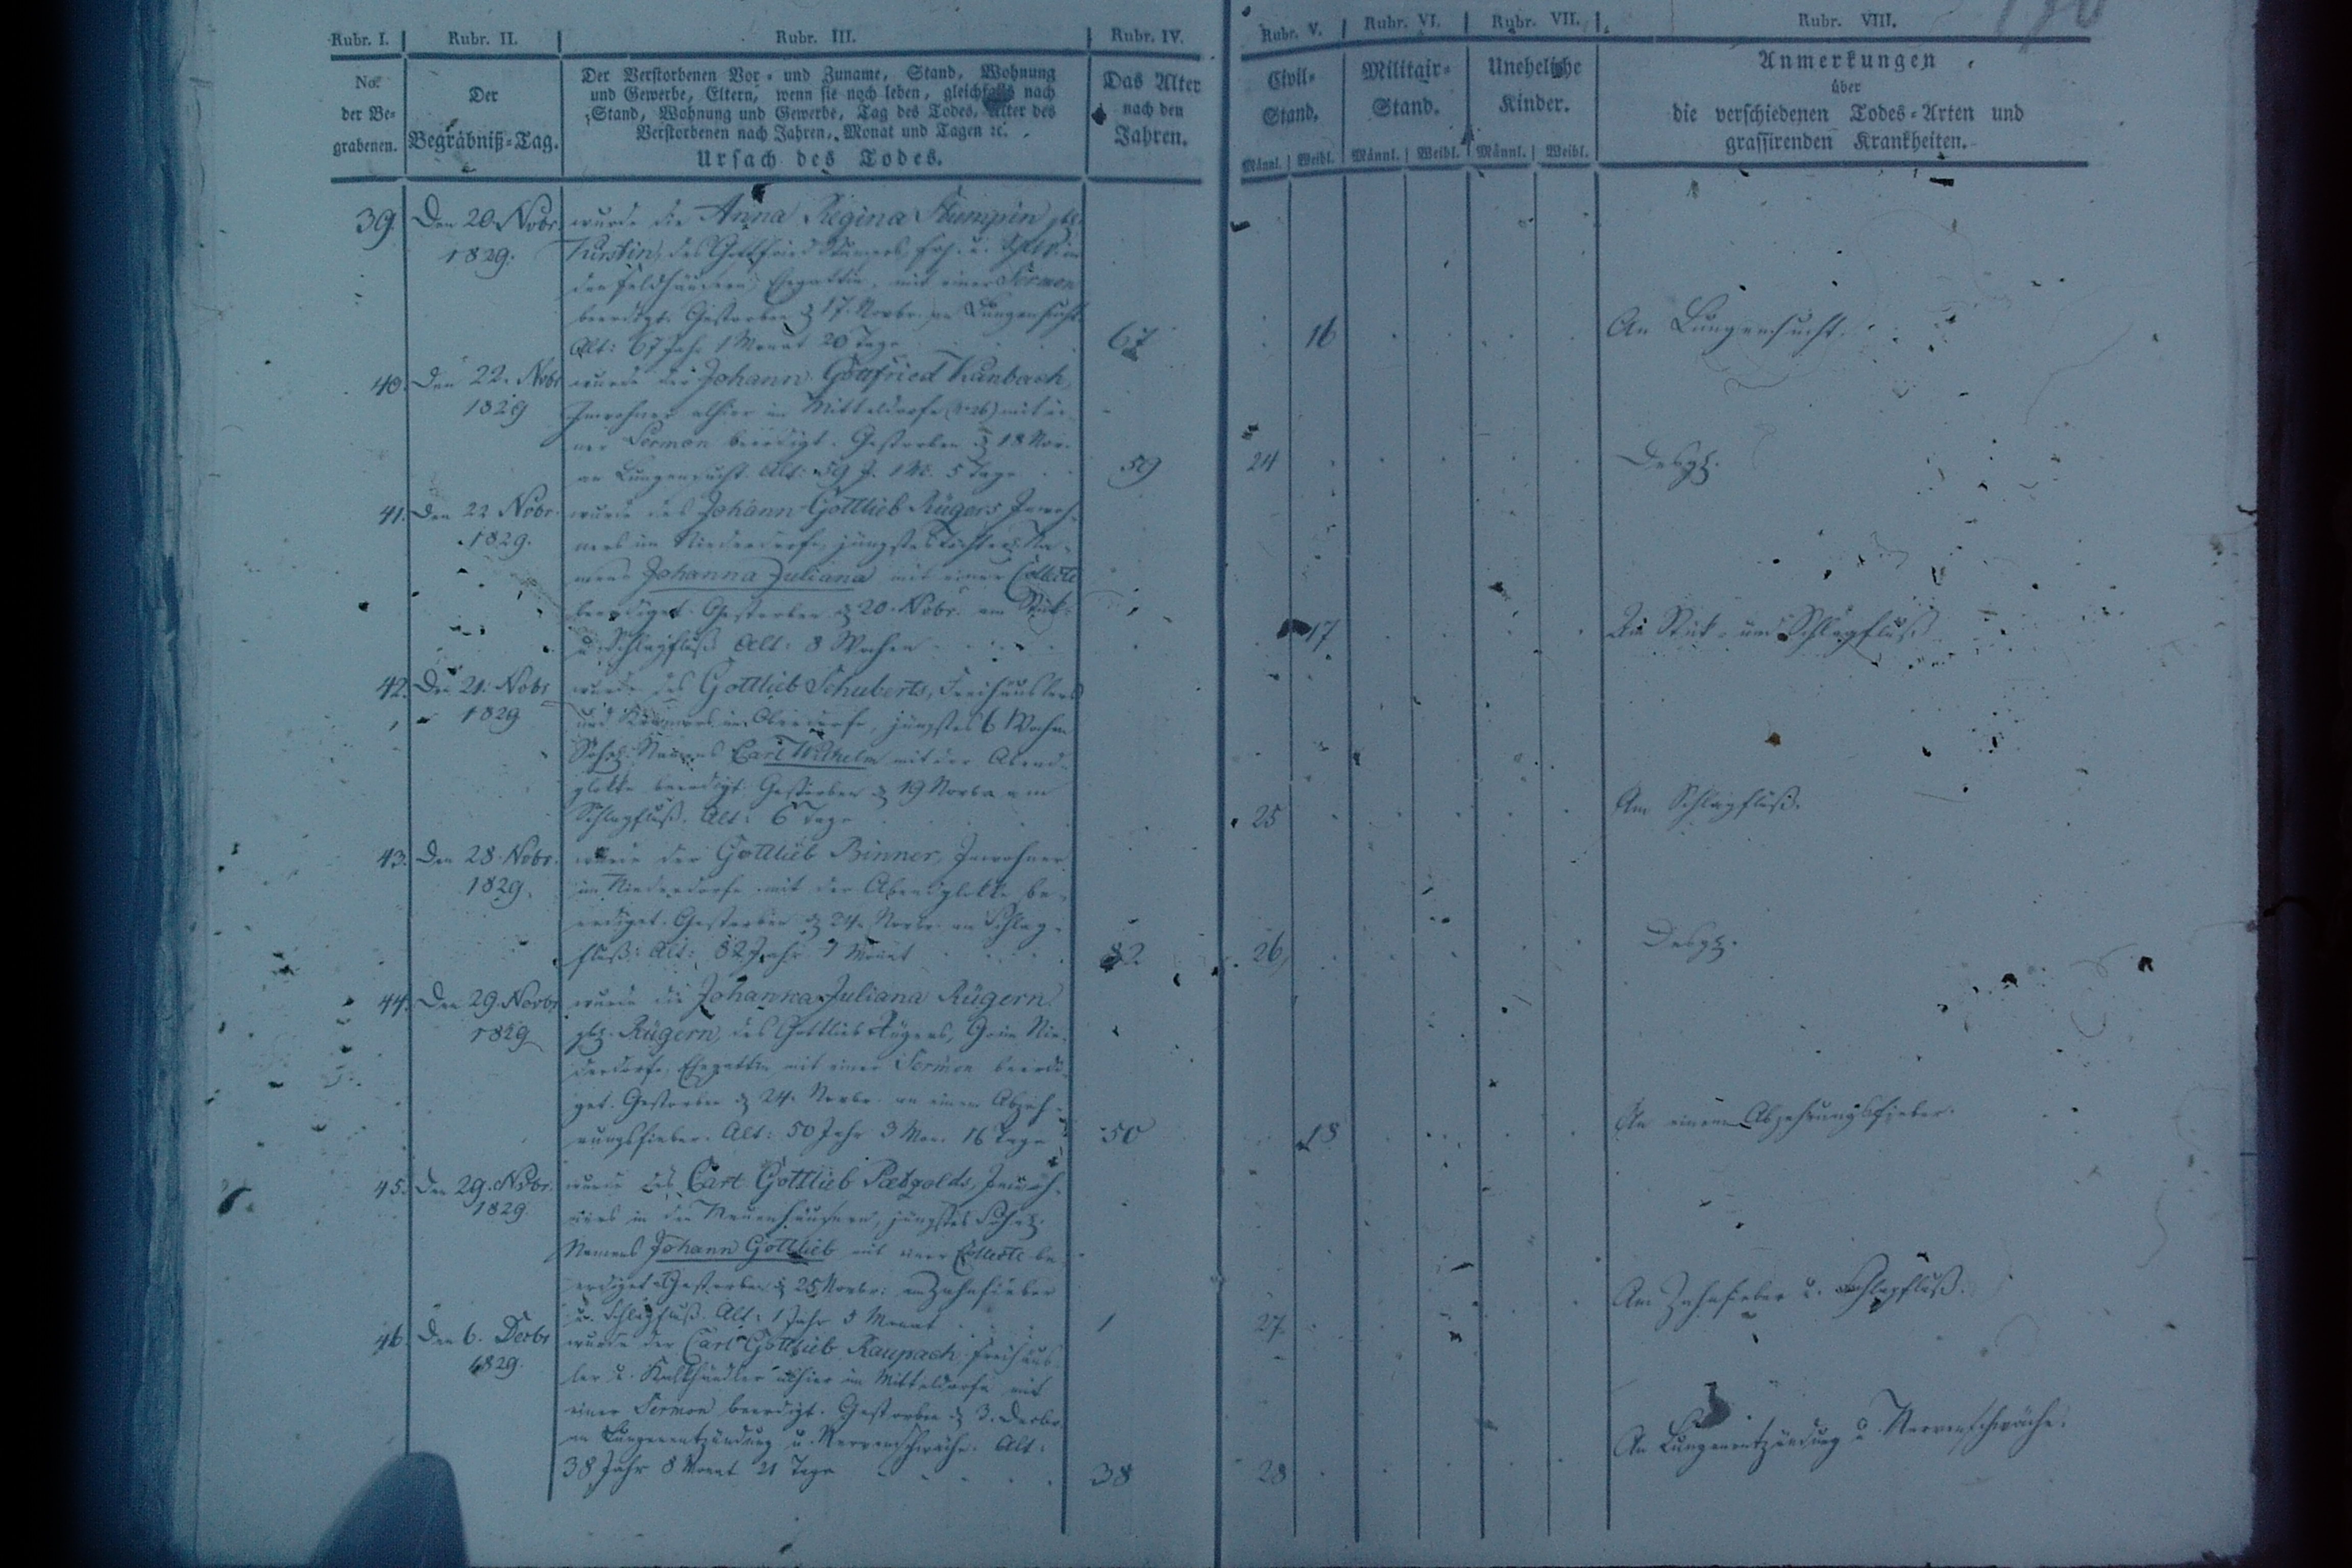 Rubr. I. Rubr. II. Rubr. III. Rubr. IV. Rubr. V. Rubr. VI. Rubr. VII. Rubr. VIII.
No.
der Be-
grabenen.
Der
Begräbniß-Tag.
Der Verstorbenen Vor- und Zuname, Stand, Wohnung
und Gewerbe, Eltern, wenn sie noch leben, gleichfalls nach
Stand, Wohnung und Gewerbe, Tag des Todes, Alter des
Verstorbenen nach Jahren, Monat und Tagen ꝛc.
Ursach des Todes.
Das Alter
nach den
Jahren.
Civil-
Stand.
Männl. Weibl.
Militair-
Stand.
Männl. Weibl.
Uneheliche
Kinder.
Männl. Weibl.
Anmerkungen
über
die verschiedenen Todes-Arten und
grassirenden Krankheiten.
39. Den 20. Nobr. wurde die Anna Regina
1829. des Gottfried
Ehegattin, mit einer Sermon
beerdigt. Gestorben d. 17. Novbr. an Lungensucht.
Alt: 67 Jahr 1 Monat 20 Tage 67 16 An Lungensucht.
40. Den 22. Nobr wurde der Johann Gottfried
1829 Inwohner alhier im Mitteldorfe mit ei-
ner Sermon beerdigt. Gestorben d. 18 Nov.
an Lungensucht. Alt: 59 J. 1 M. 5 Tage 59 24 Desgl.
41. Den 22 Nobr. wurde des Johann Gottlieb Rügers Inwoh-
1829. ners im Niederdorfe, jüngstes Na-
mens Johanna Juliana mit einer Collecte
beerdiget. Gestorben d. 20. Nobr. am Stik-
u. Schlagfluß Alt: 8 Wochen 17 Am Stik- und Schlagfluß.
42. Den 21. Nobr wurde des Gottlieb Schuberts, Freihäuslers
1829 und im Oberdorfe, jüngstes 6
Namens Carl Wilhelm mit der Abend-
glokke beerdigt. Gestorben d. 19 Novbr am
Schlagfluß. Alt: 6 Tage 25 Am Schlagfluß.
43. Den 28. Nobr. wurde der Gottlieb Binner, Inwohner
1829. im Niederdorfe mit der Abendglokke be-
erdiget. Gestorben d. 24. Novbr. am Schlag-
fluß: Alt: 82 Jahr Monat 82 26 Desgl.
44. Den 29. Novbr wurde die Johanna Juliana Rügern
1829 Rügern, des Gottlieb Rügers, im Nie-
derdorfe, Ehegattin mit einer Sermon beerdi-
get. Gestorben d. 24. Novbr. an einem Abzeh-
rungsfieber. Alt: 50 Jahr 3 Mon. 16 Tage 50 18 An einem Abzehrungsfieber.
45. Den 29. Nobr. wurde des Carl Gottlieb Inwoh-
1829. ners in den Neuenhäusern, jüngstes
Namens Johann Gottlieb mit einer Collecte be-
erdiget. Gestorben d. 25 Novbr: am Zahnfieber
u. Schlagfluß. Alt: 1 Jahr 5 Monat 1 27. Am Zahnfieber u. Schlagfluß.
46. Den 6. Decbr wurde der Carl Gottlieb Raupach, Freihäus-
1829. ler u. alhier im Mitteldorfe mit
einer Sermon beerdigt. Gestorben d. 3. Decbr.
an Lungenentzündung u. Nervenschwäche. Alt:
38 Jahr 8 Monat 21 Tage 38 28 An Lungenentzündung u. Nervenschwäche.